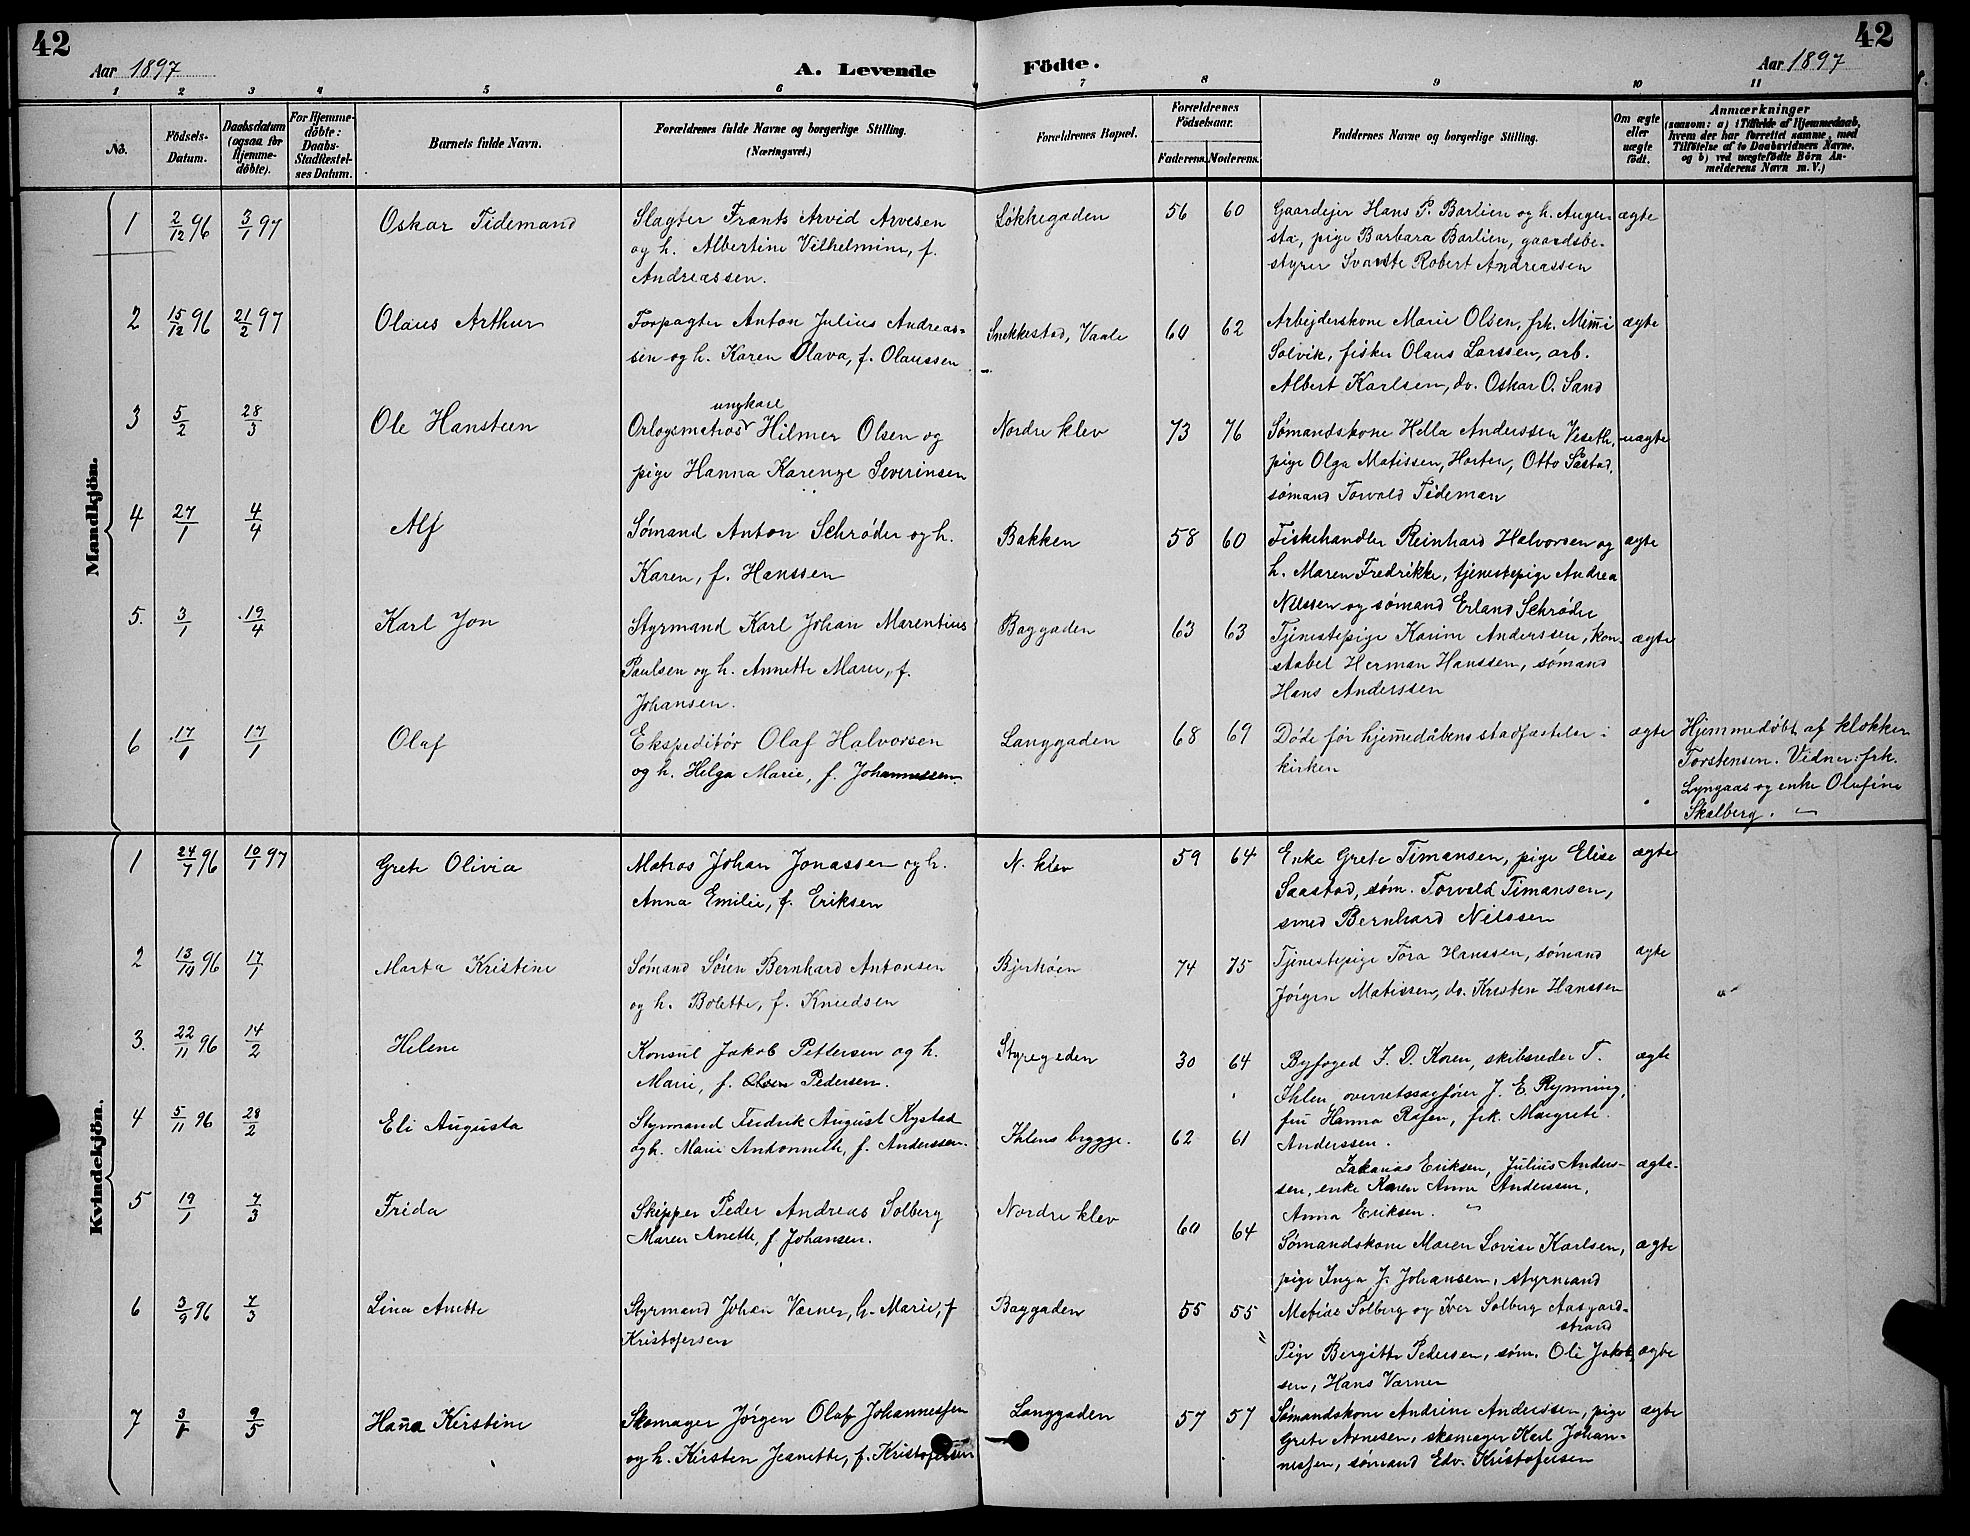 42
42
Aar 1897
A. Levende Födte.
Aar 1897
1 2 3 4 5 6 7 8 9 10 11
No.
Födsels-Datum.
Daabsdatum (ogsaa for Hjemme-döbte).
For Hjemme-döbte: Daabs-Stadfæstel-ses Datum.
Barnets fulde Navn.
Forældrenes fulde Navne og borgerlige Stilling. (Næringsvei.)
Forældrenes Bopæl.
Forældrenes Födselsaar.
Faderens. Moderens.
Faddernes Navne og borgerlige Stilling.
Om ægte eller uægte födt.
Anmærkninger
(saasom: a) i Tilfælde af Hjemmedaab,
hvem der har forrettet samme, med
Tilföielse af to Daabsvidners Navne,
og b) ved uægtefödte Börn An-
melderens Navn m. V.)
Mandkjön.
1 2/12 96 3/1 97 Oskar Tidemand
Slagter Frants Arvid Arvesen
og h. Albertine Vilhelmine, f.
Andreassen.
Løkkegaden 56 60
Gaardejer Hans P. Barlien og h. Augu-
sta, pige Barbara Barlien, gaardsbe-
styrer Svante Robert Andreassen
ægte
2 15/12 96 21/2 97 Olaus Arthur
Forpagter Anton Julius Andreas-
sen og h. Karen Olava, f. Olaussen
Snekkestad, Vaale 60 62
Arbejderskone Marie Olsen, frk. Mimi
Solvik, fisker Olaus Larssen, arb.
Albert Karlsen, do. Oskar O. Sand
ægte
3 5/2 28/3 Ole Hansteen
ungkarl
Orlogsmatros Hilmer Olsen og
pige Hanna Karenze Severinsen
Nordre klev 73 76
Sømandskone Hella Anderssen Veseth,
pige Olga Matissen, Horten, Otto Såstad,
sømand Torvald Tideman
uægte
4 27/1 4/4 Alf
Sømand Anton Schrøder og h.
Karen, f. Hanssen
Bakken 58 60
Fiskehandler Reinhard Halvorsen og
h. Maren Fredrikke, tjenestepige Andrea
Nilssen og sømand Erland Schrøder
ægte
5. 3/1 19/4 Karl Jon
Styrmand Karl Johan Marentius
Paulsen og h. Annette Marie, f.
Johansen.
Baggaden 63 63
Tjenestepige Karine Anderssen, kon-
stabel Herman Hanssen, sømand
Hans Anderssen
ægte
6 17/1 17/1 Olaf
Ekspeditør Olaf Halvorsen
og h. Helga Marie, f. Johannessen.
Langgaden 68 69
Døde før hjemmedåbens stadfæstelse i
kirken
ægte
Hjemmedøbt af klokker
Torstensen. Vidner: frk.
Lyngaas og enke Olufine
Skalberg.
Kvindekjön.
1 24/7 96 10/1 97 Grete Olivia
Matros Johan Jonassen og h.
Anna Emilie, f. Eriksen
N. klev 59 64
Enke Grete Timansen, pige Elise
Saastad, søm. Torvald Timansen,
smed Bernhard Nilssen
ægte
2 13/10 96 17/1 Marta Kristine
Sømand Sören Bernhard Antonsen
og h. Bolette, f. Knudsen
Bjerkøen 74 75
Tjenestepige Tora Hanssen, sømand
Jørgen Matissen, do. Kristen Hanssen
ægte
3. 22/11 96 14/2 Helene
Konsul Jakob Pettersen og h.
Marie, f. Olsen Pedersen.
Styregaden 30 64
Byfoged J. D. Koren, skibsreder T.
Ihlen, overretssagfører J. E. Rynning,
fru Hanna Rafen, frk. Margrete
Anderssen.
ægte
4 5/11 96 28/2 Eli Augusta
Styrmand Fredrik August Rystad
og h. Marie Antonnette, f. Anderssen.
Ihlens brygge. 62 61
Zakarias Eriksen, Julius Anders-
sen, enke Karen Anne Anderssen,
Anna Eriksen.
ægte
5 19/1 7/3 Frida
Skipper Peder Andreas Solberg
Maren Anette, f Johansen.
Nordre klev 60 64
Sømandskone Maren Lovise Karlsen,
pige Inga J. Johansen, styrmand
Matias Solberg og Iver Solberg Aasgard-
strand
ægte
6 3/9 96 7/3 Lina Anette
Styrmand Johan Værner, h. Marie, f
Kristofersen
Baggaden 55 55
Pige Bergitte Pedersen, søm. Ole Jakob-
sen, Hans Værner
ægte
7 9/5 Hanna Kirstine
Skomager Jörgen Olaf Johannessen
og h. Kirsten Jeanette, f. Kristofersen
Langgaden 57 57
Sømandskone Andrine Anderssen, pige
Grete Arnesen, skomager Karl Johan-
nessen, sømand Edv. Kristofersen
ægte